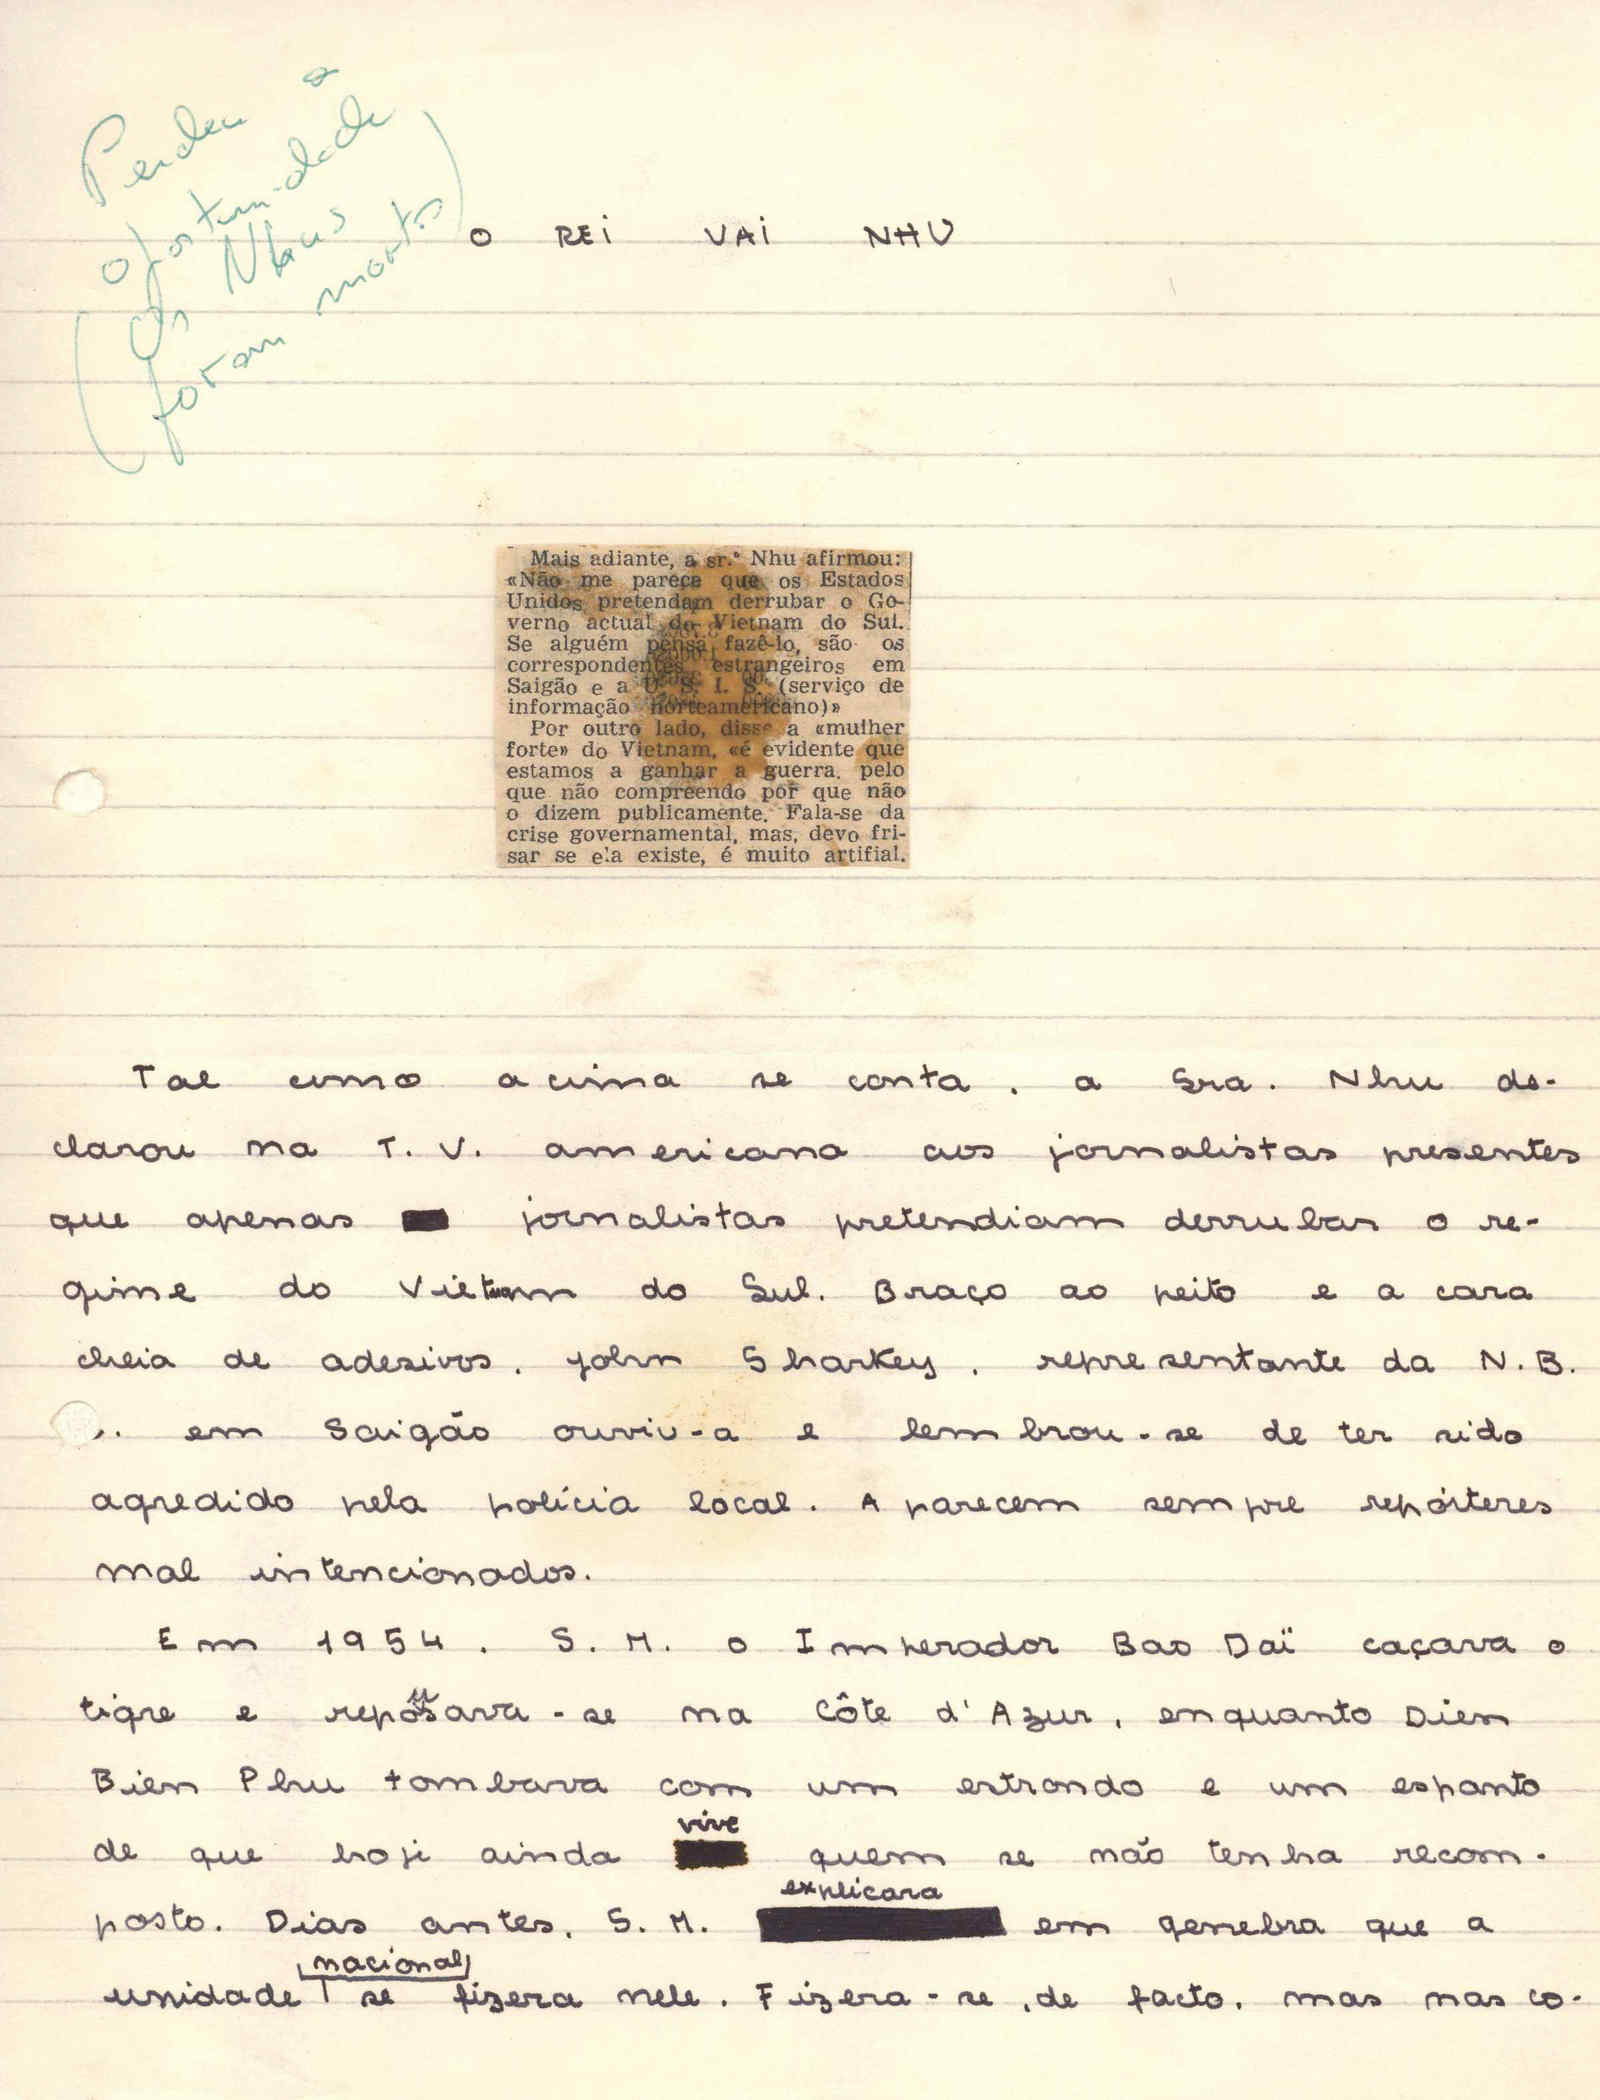 Perdeu a
oportunidade
(Os Nhus
foram mortos)
O REI VAI NHU
Mais adiante, a sr.ª Nhu afirmou:
«Não me parece que os Estados
Unidos pretendam derrubar o Go-
verno actual do Vietnam do Sul.
Se alguém pensa fazê-lo, são os
correspondentes estrangeiros em
Saigão e a U. S. I. S. (serviço de
informação norteamericano)»
Por outro lado, disse a «mulher
forte» do Vietnam, «é evidente que
estamos a ganhar a guerra, pelo
que não compreendo por que não
o dizem publicamente. Fala-se da
crise governamental, mas, devo fri-
sar se ela existe, é muito artifial.
Tal como acima se conta, a Sra. Nhu de-
clarou na T. V. americana aos jornalistas presentes
que apenas jornalistas pretendiam derrubar o re-
gime do Vietnam do Sul. Braço ao peito e a cara
cheia de adesivos, John Sharkey, representante da N.B.
.. em Saigão ouviu-a e lembrou-se de ter sido
agredido pela polícia local. Aparecem sempre repórteres
mal intencionados.
Em 1954, S. M. o Imperador Bao Daï caçava o
tigre e repousava-se na Côte d'Azur, enquanto Dien
Bien Phu tombava com um estrondo e um espanto
de que hoje ainda vive quem se não tenha recom-
posto. Dias antes, S. M. explicara em Genebra que a
unidade nacional se fizera nele. Fizera-se, de facto, mas nas co-